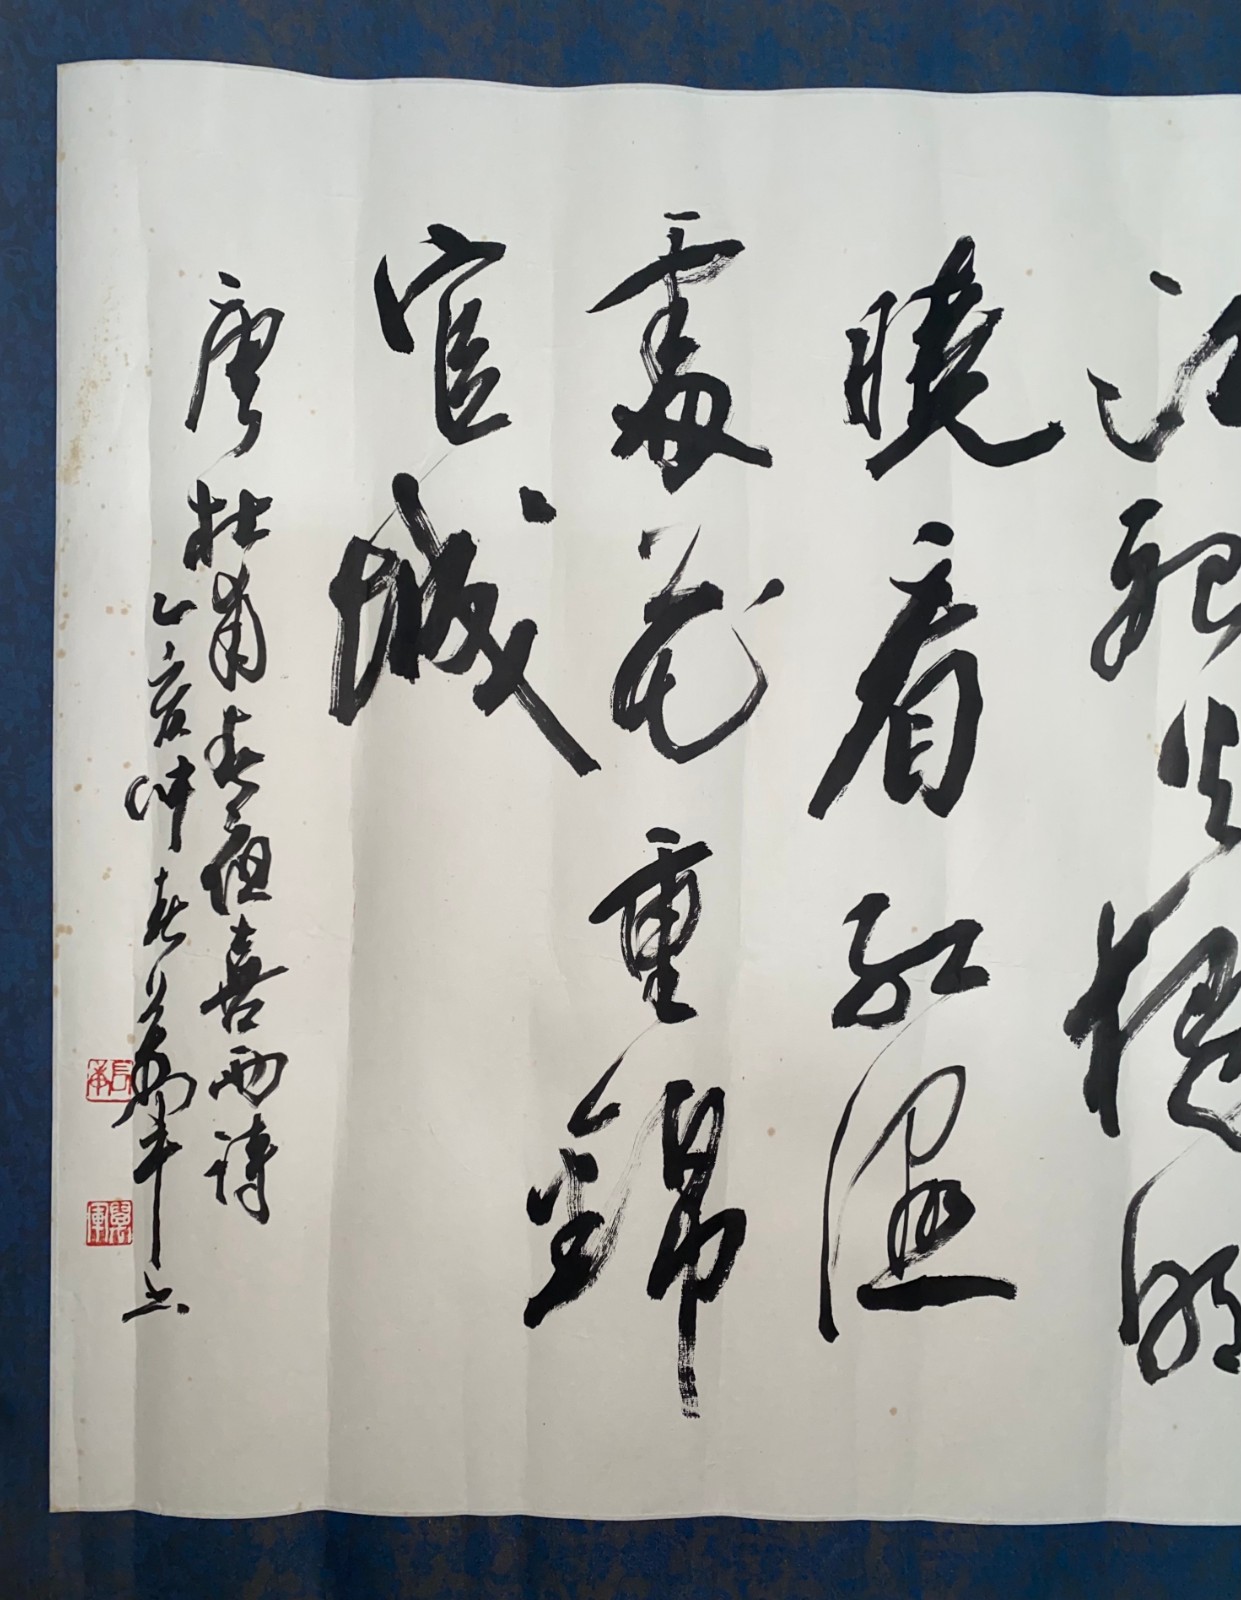 江船火獨明
曉看紅湿
處花重錦
官城
唐杜甫春夜喜雨詩
乙亥仲春
书